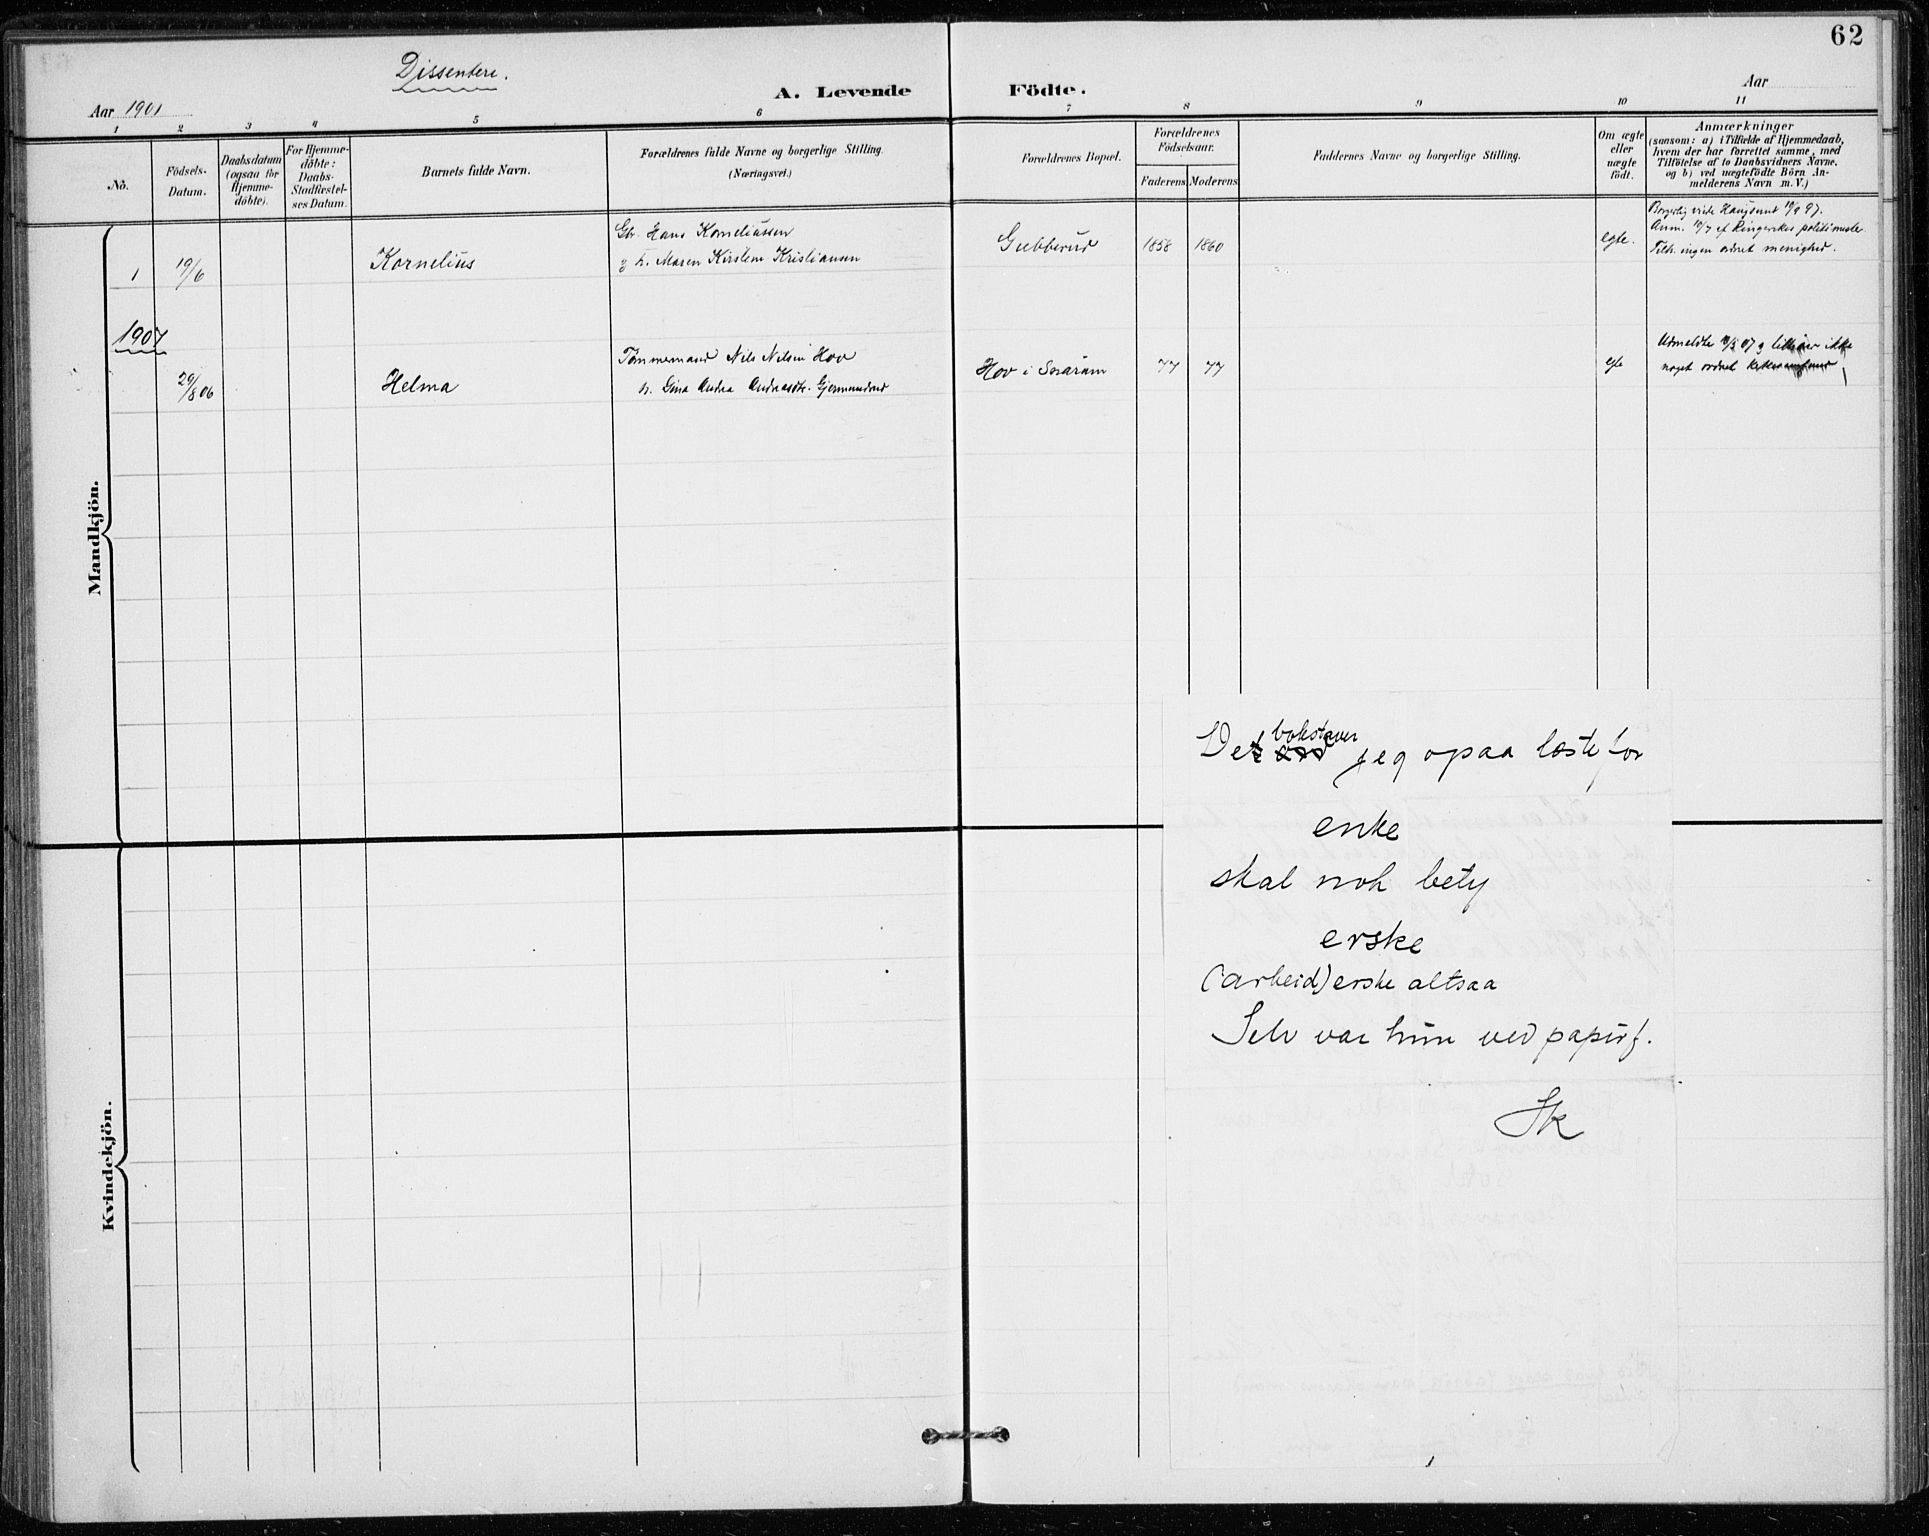 62
Dissentere.
Aar 1901
A. Levende Födte.
Aar
1 2 3 4 5 6 7 8 9 10 11
No.
Födsels-
Datum.
Daabsdatum
(ogsaa for
Hjemme-
döbte).
For Hjemme-
döbte:
Daabs-
Stadfæstel-
ses Datum.
Barnets fulde Navn.
Forældrenes fulde Navne og borgerlige Stilling
(Næringsvei.)
Forældrenes Bopæl.
Forældrenes
Födselsaar.
Faderens Moderens
Faddernes Navne og borgerlige Stilling.
Om ægte
eller
uægte
födt.
Anmærkninger
(saasom: a) i Tilfælde af Hjemmedaab,
hvem der har forrettet samme, med
Tilföielse af to Daabsvidners Navne.
og b) ved uægtefödte Börn An-
melderens Navn m. V.)
Mandkjön.
1 19/6 Kornelius
Gbr. Hans Korneliussen
g h. Maren Kirstine Kristiansen
Gubberud 1858 1860 egte.
Borgerlig viede
Anm. af Ringerikes politimester
Tilh. ingen ordnet menighed.
1907
29/8 06 Helma
Tømmermand Nils Nilsen Hov
h. Gina Andrea Gjermundrud
Hov i Snarum 77 77 egte
Udmeldte ikke
noget ordnet
Kvindekjön.
Det bokstaver jeg opaa læste for
enke
skal noh bety
erske
(arbeid)erske altsaa
Selv var hun ved papirf.
Sk